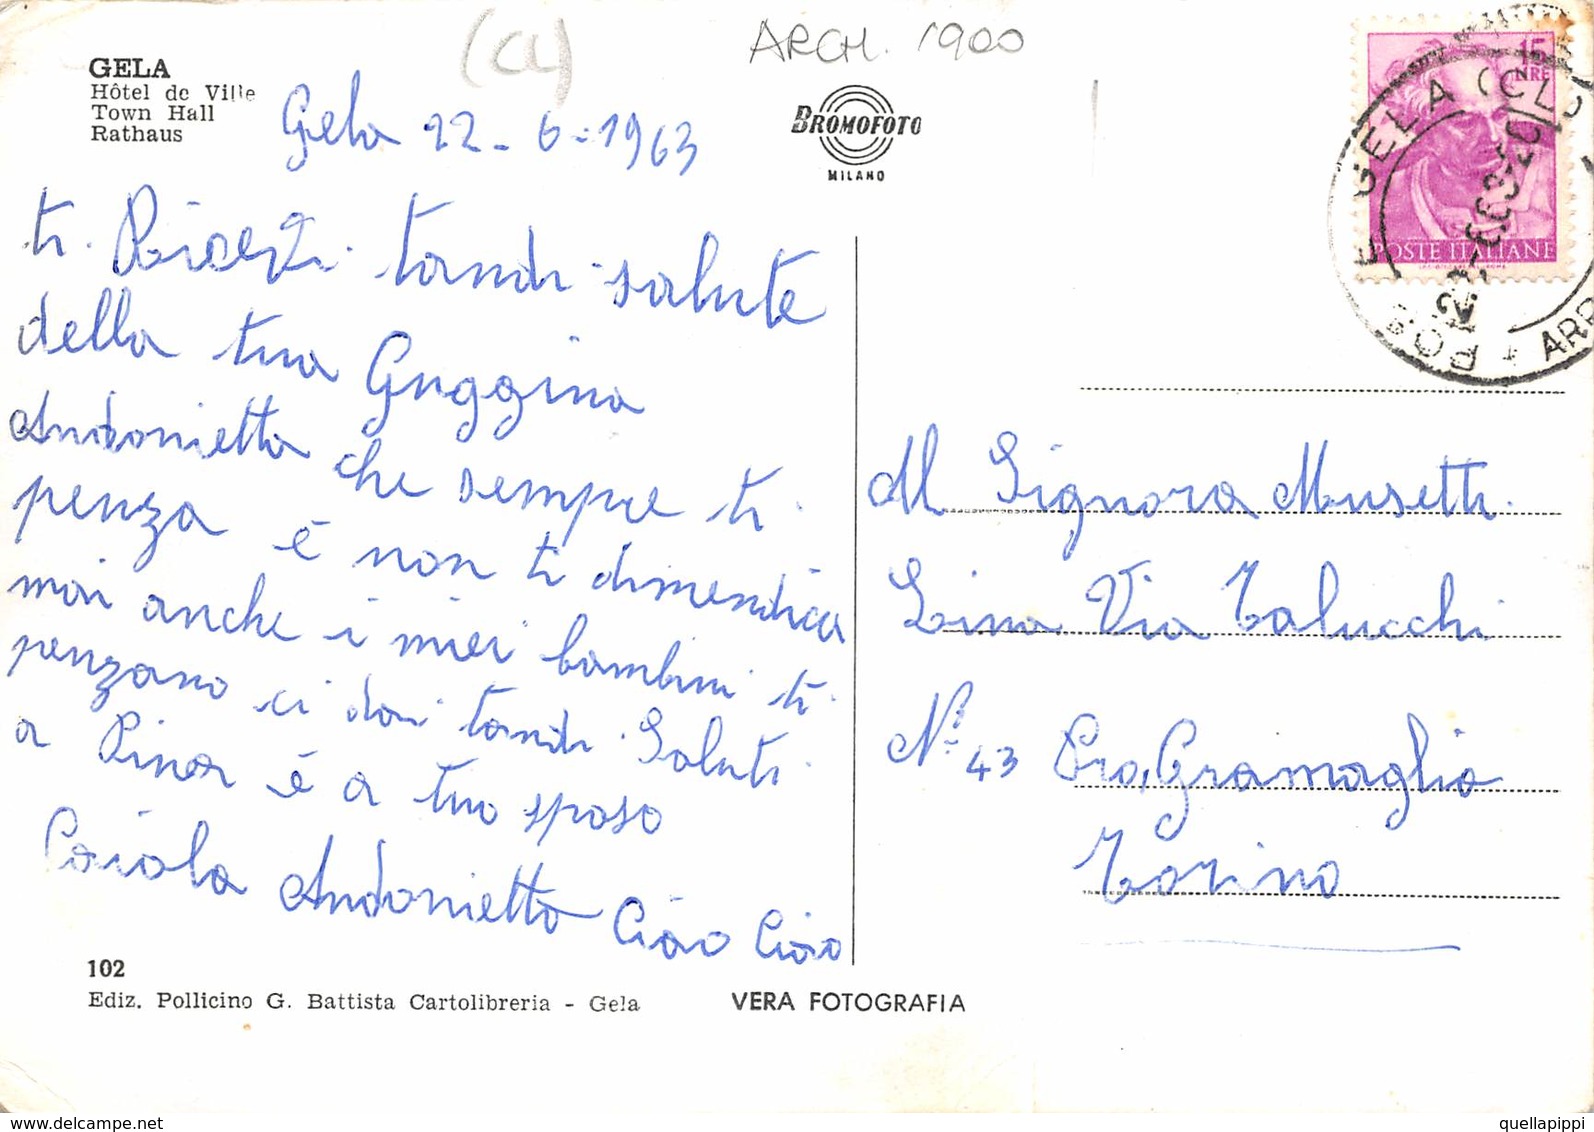 GELA
Hôtel de Ville
Town Hall
Rathaus
(CL)
ARCH. 1900
BROMOFOTO
MILANO
15
LIRE
POSTE ITALIANE
GELA (CL)
Gela 22-6-1963
ti. Ricevi tandi salute
della tua Guggina
Andonietta che sempre ti
penza é non ti dimendica
mai anche i miei bambini ti
penzano ci dai tandi Saluti
a Pina é a tuo sposo
Caiola Andonietta Ciao Ciao
Al Signora Musetti
Lina Via Talucchi
N° 43 Pro, Gramaglia
Torino
102
Ediz. Pollicino G. Battista Cartolibreria - Gela
VERA FOTOGRAFIA
quellapippi